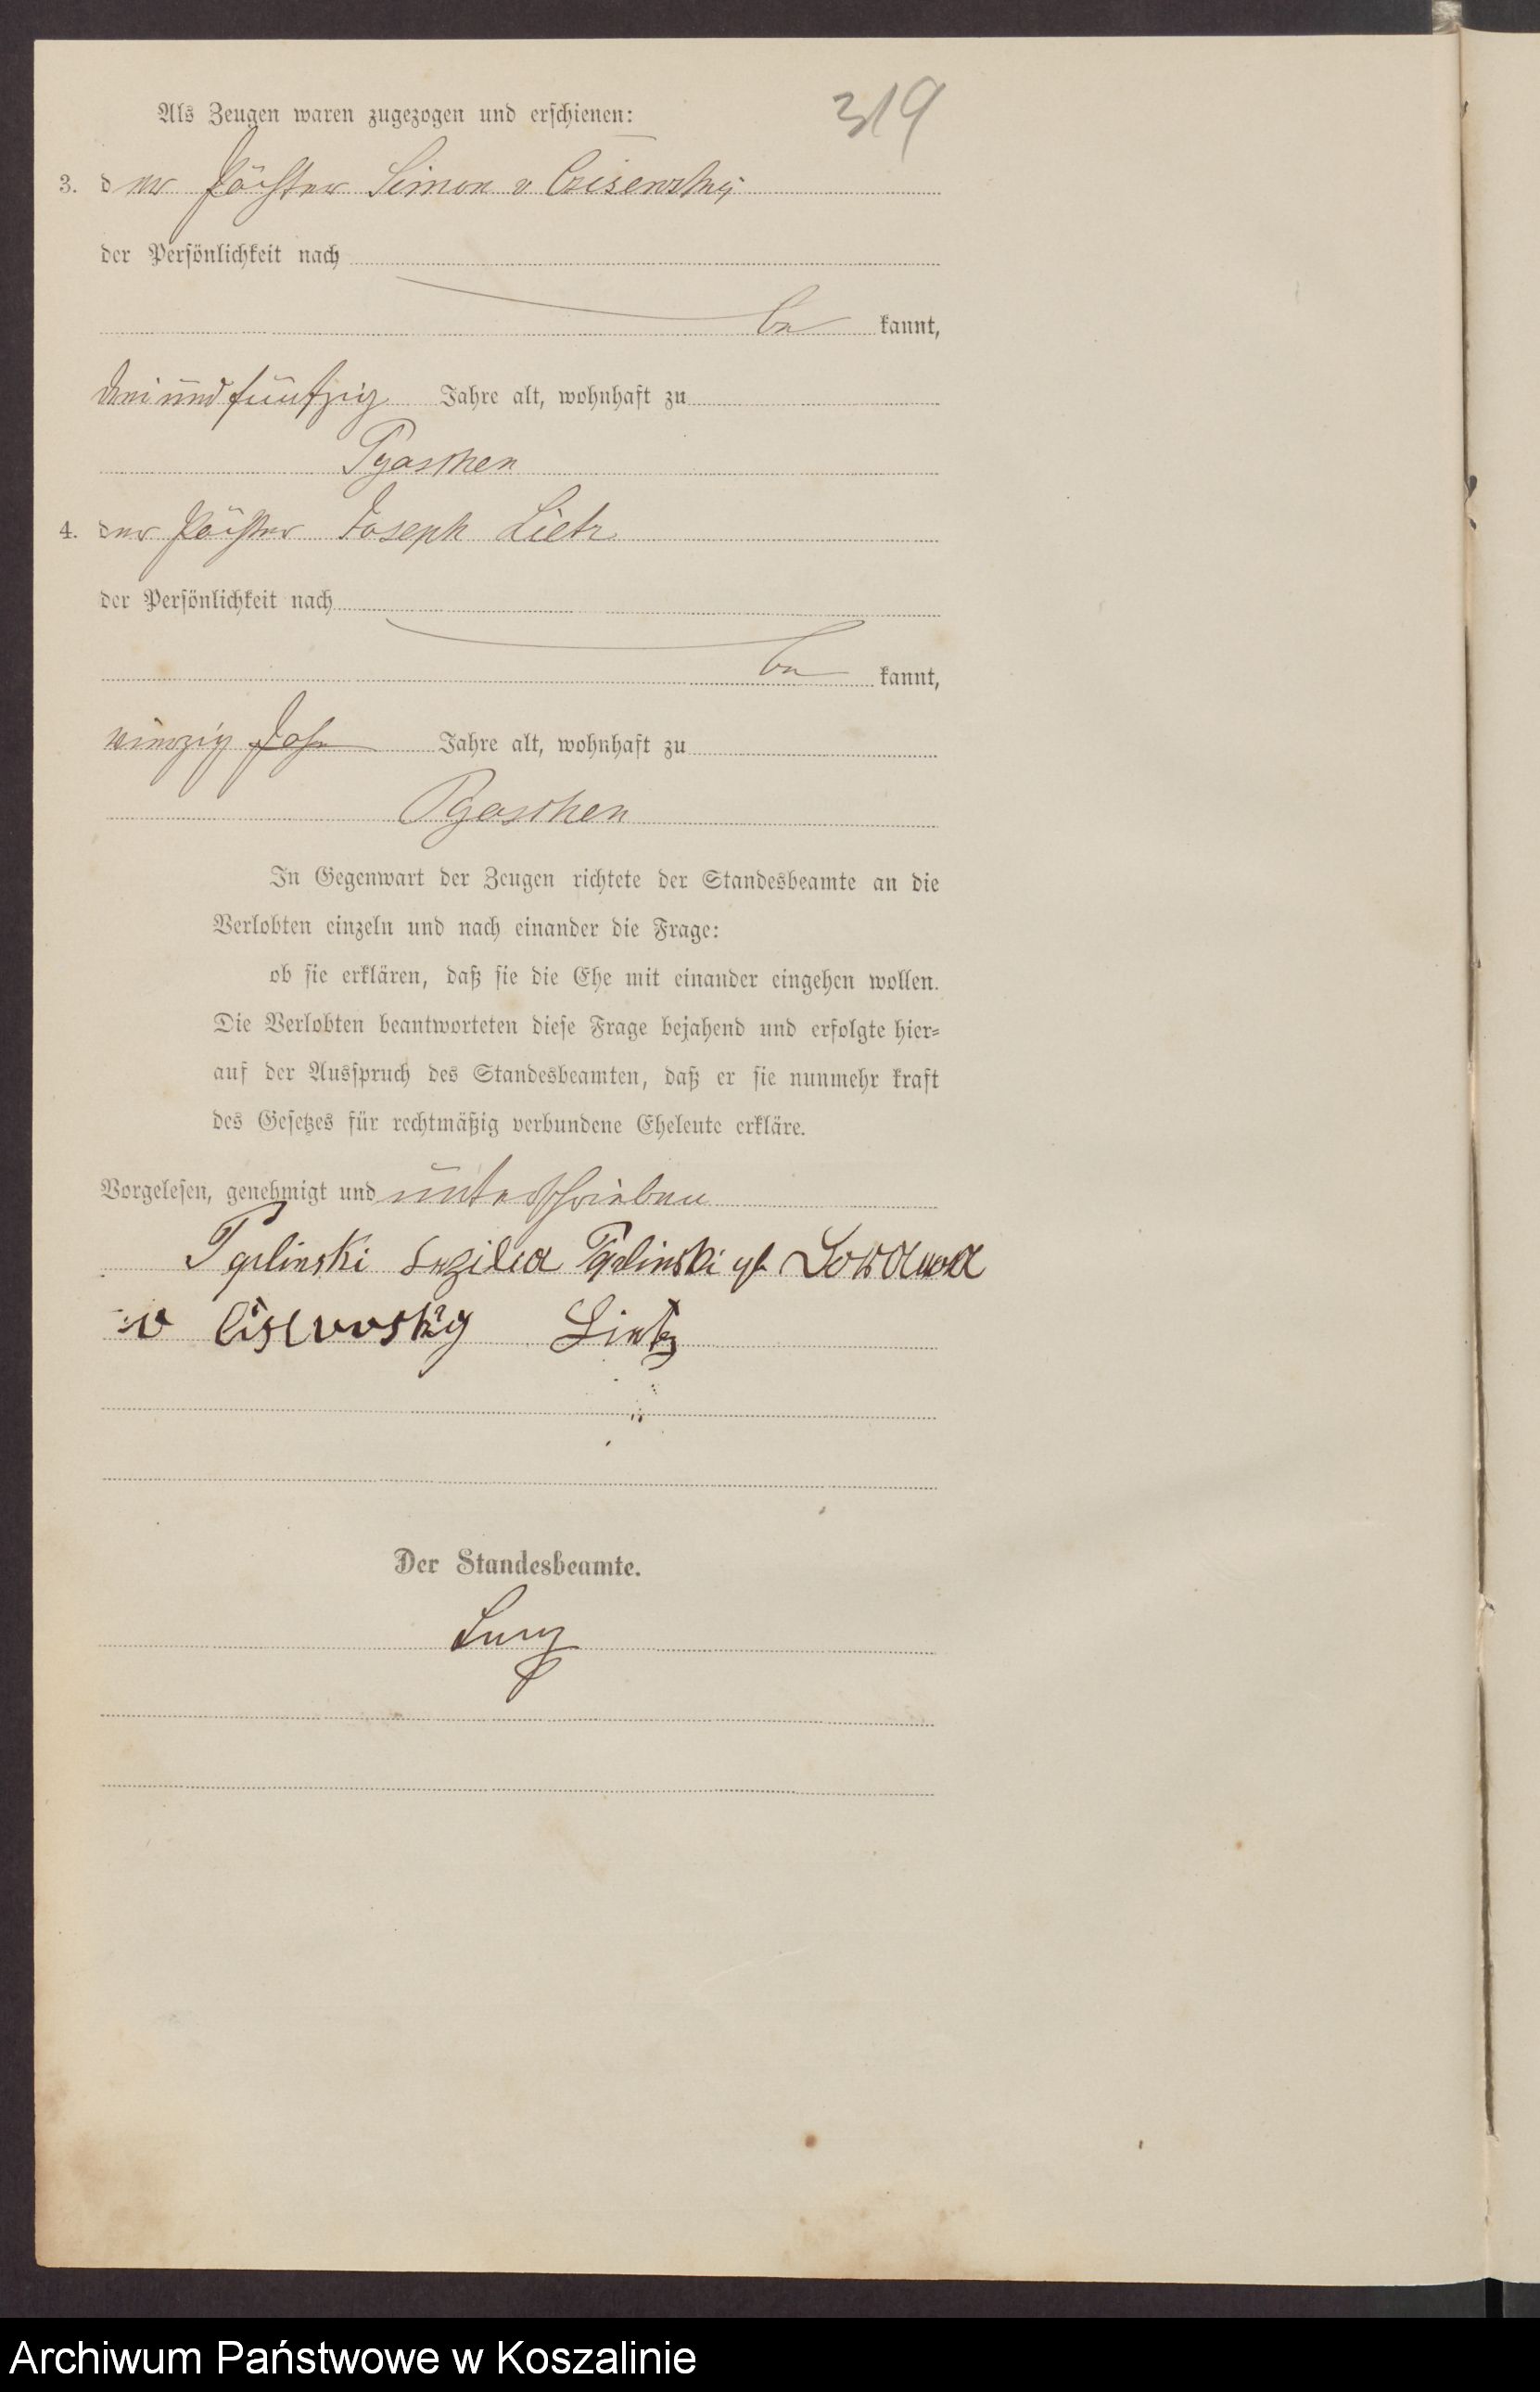 319
Als Zeugen waren zugezogen und erschienen:
3. der Förster Simon v Czisewsky
der Persönlichkeit nach
be kannt,
drei und fünfzig Jahre alt, wohnhaft zu
4. der Förster Joseph Lietz
der Persönlichkeit nach
be kannt,
vierzig Jahr Jahre alt, wohnhaft zu
In Gegenwart der Zeugen richtete der Standesbeamte an die
Verlobten einzeln und nach einander die Frage:
ob sie erklären, daß sie die Ehe mit einander eingehen wollen.
Die Verlobten beantworteten diese Frage bejahend und erfolgte hier-
auf der Ausspruch des Standesbeamten, daß er sie nunmehr kraft
des Gesetzes für rechtmäßig verbundene Eheleute erkläre.
Vorgelesen, genehmigt und unterschrieben
v Lietz
Der Standesbeamte.
Archiwum Państwowe w Koszalinie